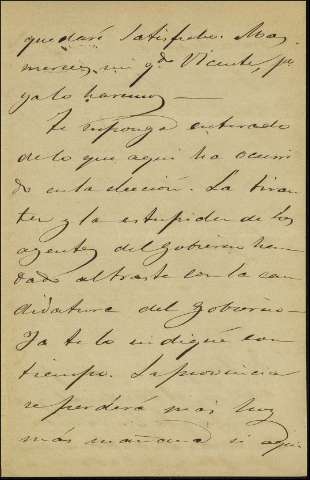 quedaré satisfecho. Mas
merece mi qdo Vicente, pr
ya lo haremos —
Te supongo enterado
de lo que aqui ha ocurri
do en la elección. La tiran
tez y la estupidez de los
agentes del gobierno han
dado al traste con la can
didatura del gobierno —
Ya te lo indiqué con
tiempo. La provincia
se perderá mas hoy
más mañana si aqui